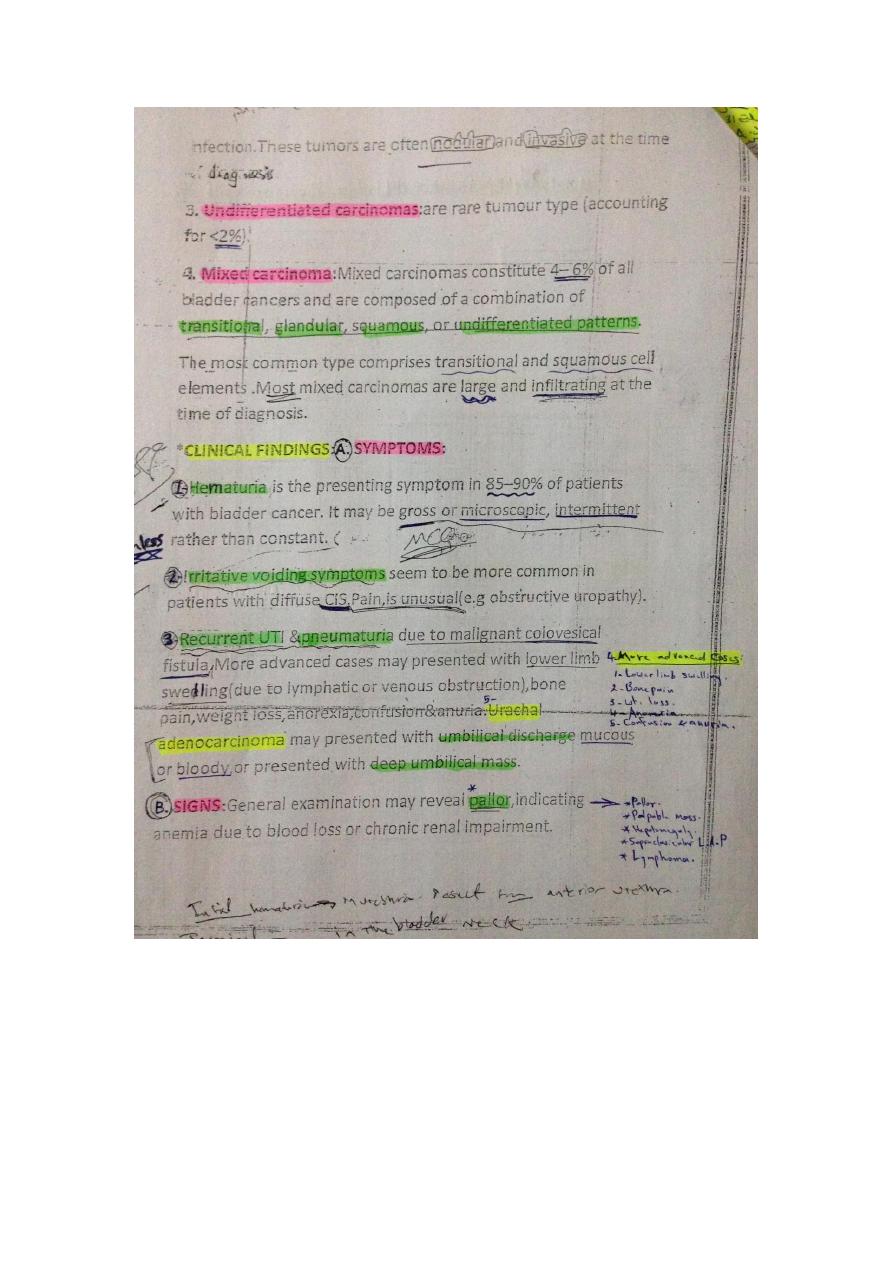 nfection.These tumors are often nodular and invasive at the time
diagnosis
3. Undifferentiated carcinomas:are rare tumour type (accounting
for <2%).
4. Mixed carcinoma:Mixed carcinomas constitute 4–6% of all
bladder cancers and are composed of a combination of
transitional, glandular, squamous, or undifferentiated patterns.
The most common type comprises transitional and squamous cell
elements .Most mixed carcinomas are large and infiltrating at the
time of diagnosis.
*CLINICAL FINDINGS:A.SYMPTOMS:
1-Hematuria is the presenting symptom in 85–90% of patients
with bladder cancer. It may be gross or microscopic, intermittent
less rather than constant. (
MCQ
2-Irritative voiding symptoms seem to be more common in
patients with diffuse CIS,Pain,is unusual(e.g obstructive uropathy).
3-Recurrent UTI &pneumaturia due to malignant colovesical
fistula,More advanced cases may presented with lower limb
4-More advanced Cases:
swedling(due to lymphatic or venous obstruction),bone
1-Lower limb swelling.
2-Bone pain
3-wt. loss.
pain,weight loss,anorexia,confusion&anuria.5-Urachal
4-Anorexia
5-Confusion & anuria.
adenocarcinoma may presented with umbilical discharge mucous
or bloody,or presented with deep umbilical mass.
B.SIGNS:General examination may reveal *pallor,indicating
anemia due to blood loss or chronic renal impairment.
*Pallor.
*Palpable mass.
*Hepatomegaly.
*Supraclavicular L.A.P
*Lymphoma.
anterior urethra.
in the bladder neck